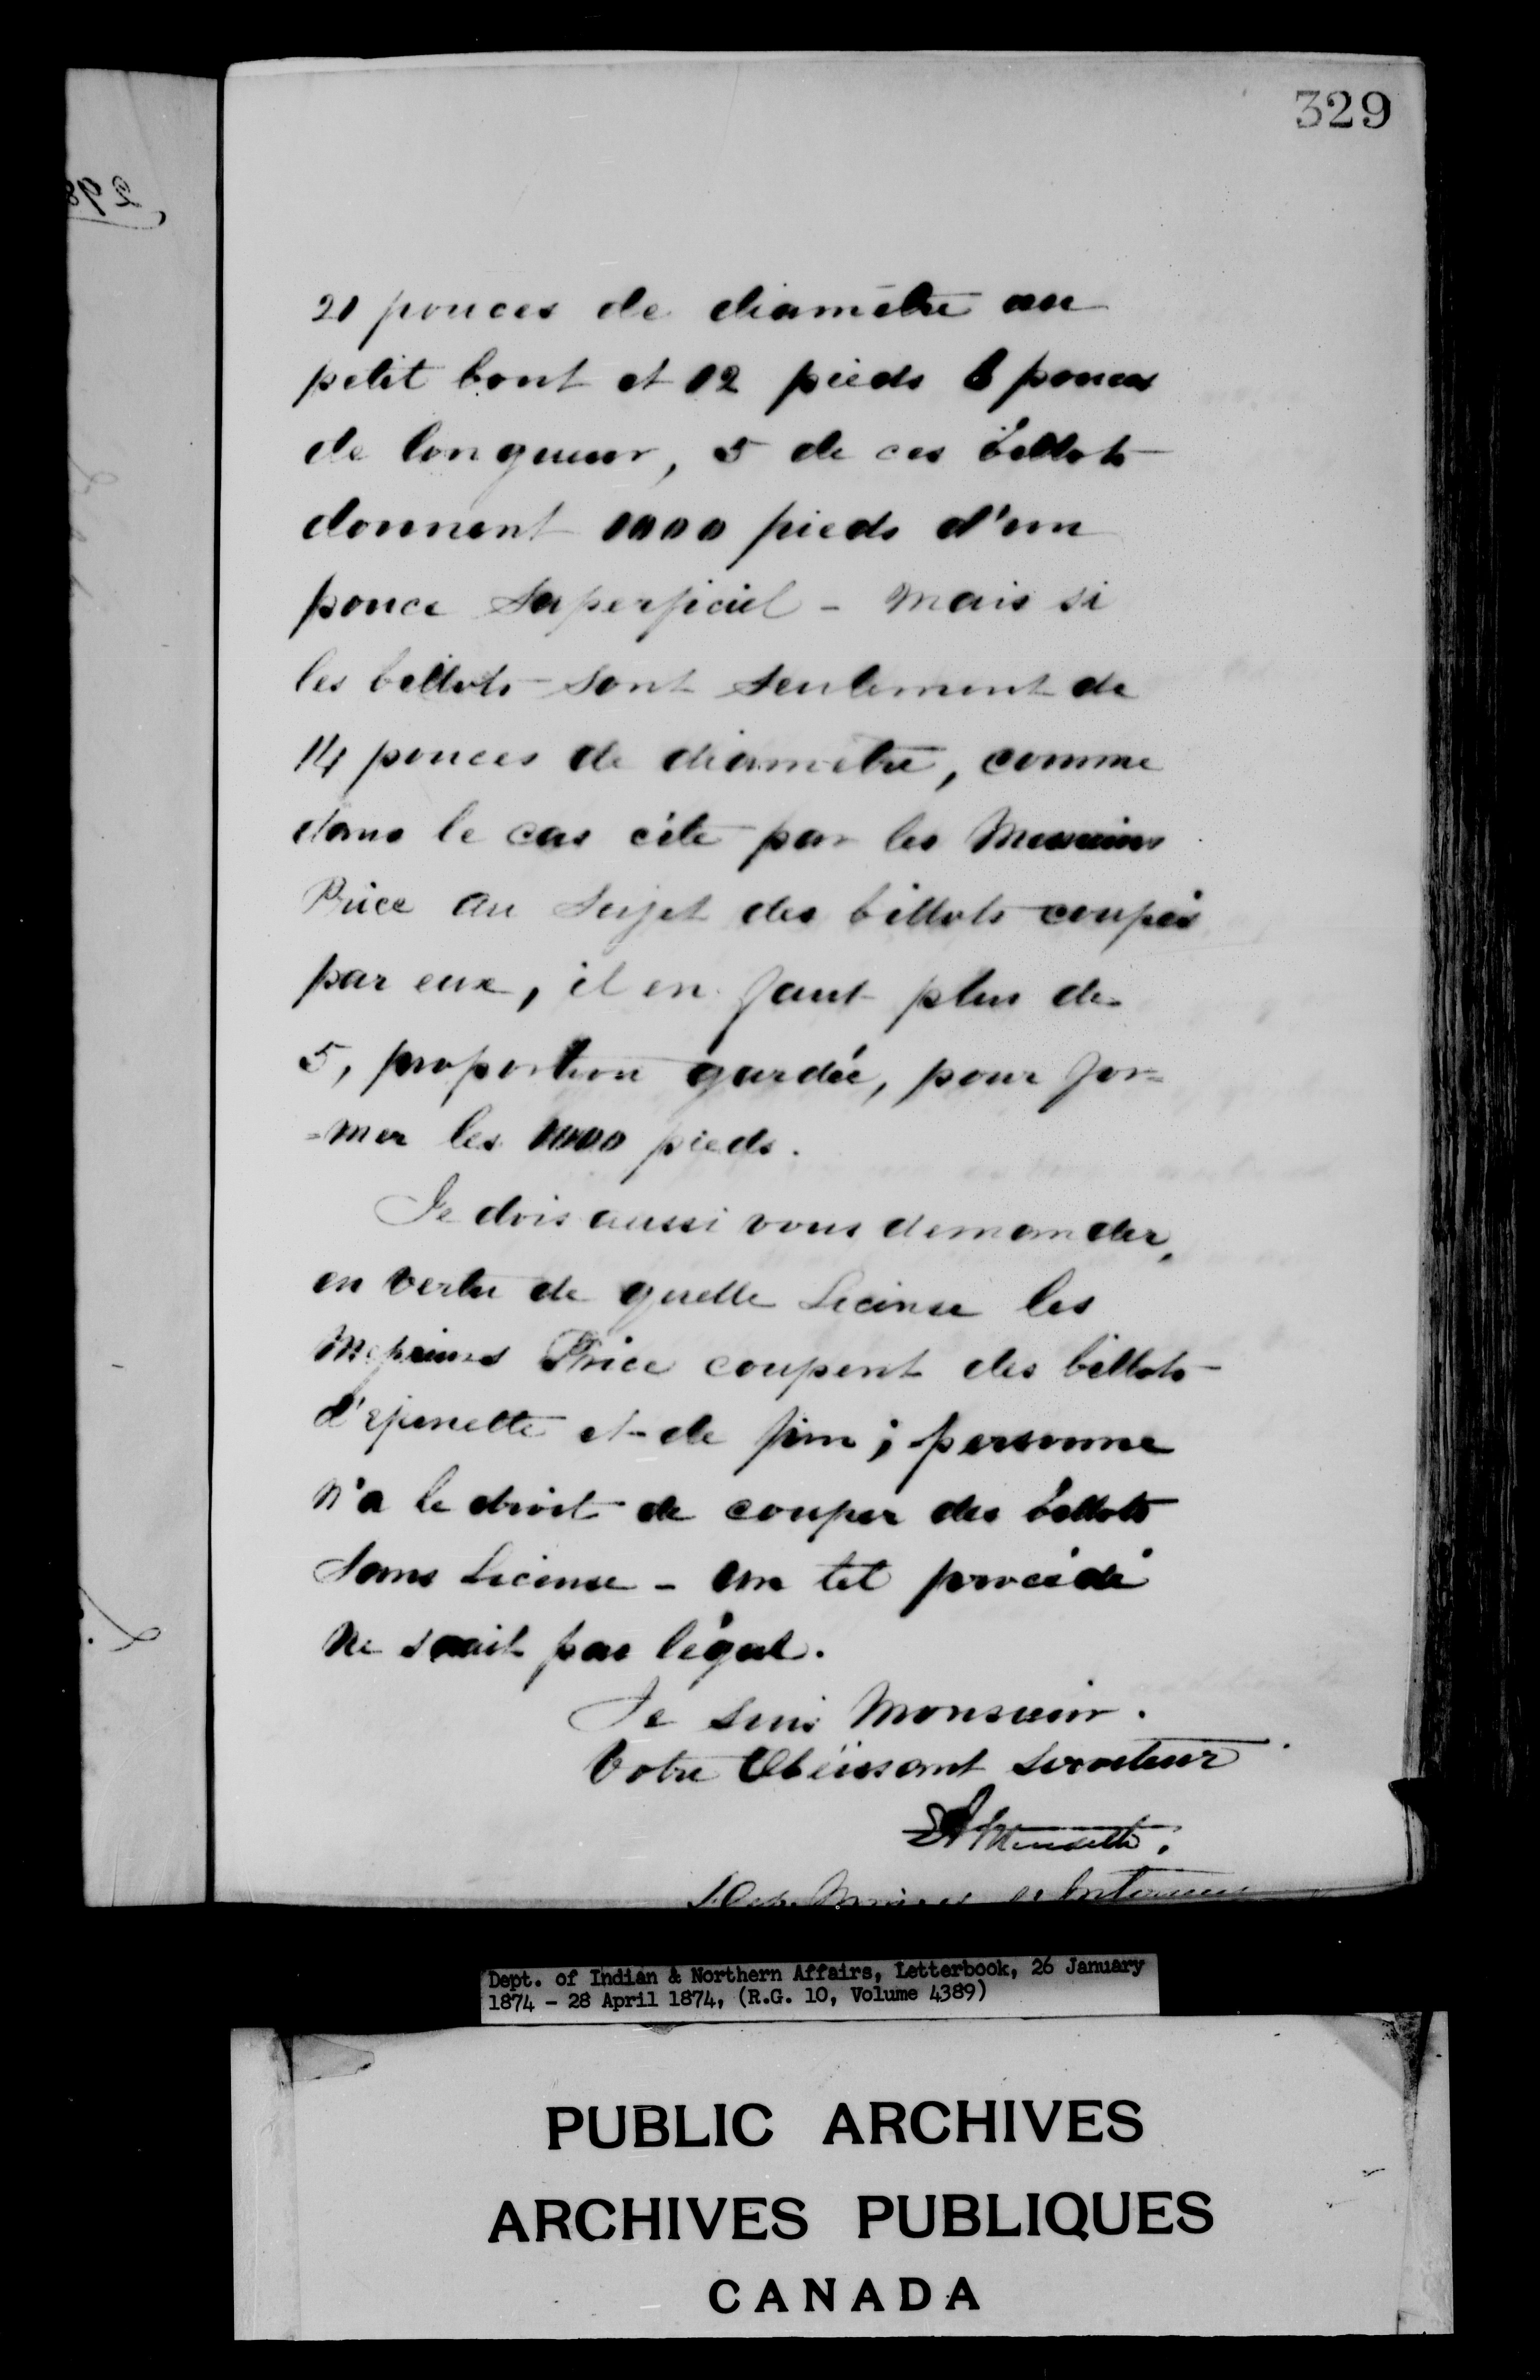 329
298
20 pouces de diamètre au
petit bout et 12 pieds 6 pouces
de longueur, 5 de ces billots
donnent 1000 pieds d'un
pouce Superficiel - Mais si
les billots sont seulement de
14 pouces de diamètre, comme
dans le cas cité par les Messieurs
Price au Sujet des billots coupés
par eux, il en faut plus de
5, proportion gardée, pour for=
=mer les 1000 pieds.
Je dois aussi vous demander,
en vertu de quelle License les
Messieurs Price coupent des billots
d'Epinette et de pin ; personne
n'a le droit de couper des billots
Sans License - Un tel procédé
ne serait pas légal.
Je suis Monsieur.
Votre Obéissant Serviteur
Dept. of Indian & Northern Affairs, Letterbook, 26 January
1874 - 28 April 1874, (R.G. 10, Volume 4389)
PUBLIC ARCHIVES
ARCHIVES PUBLIQUES
CANADA